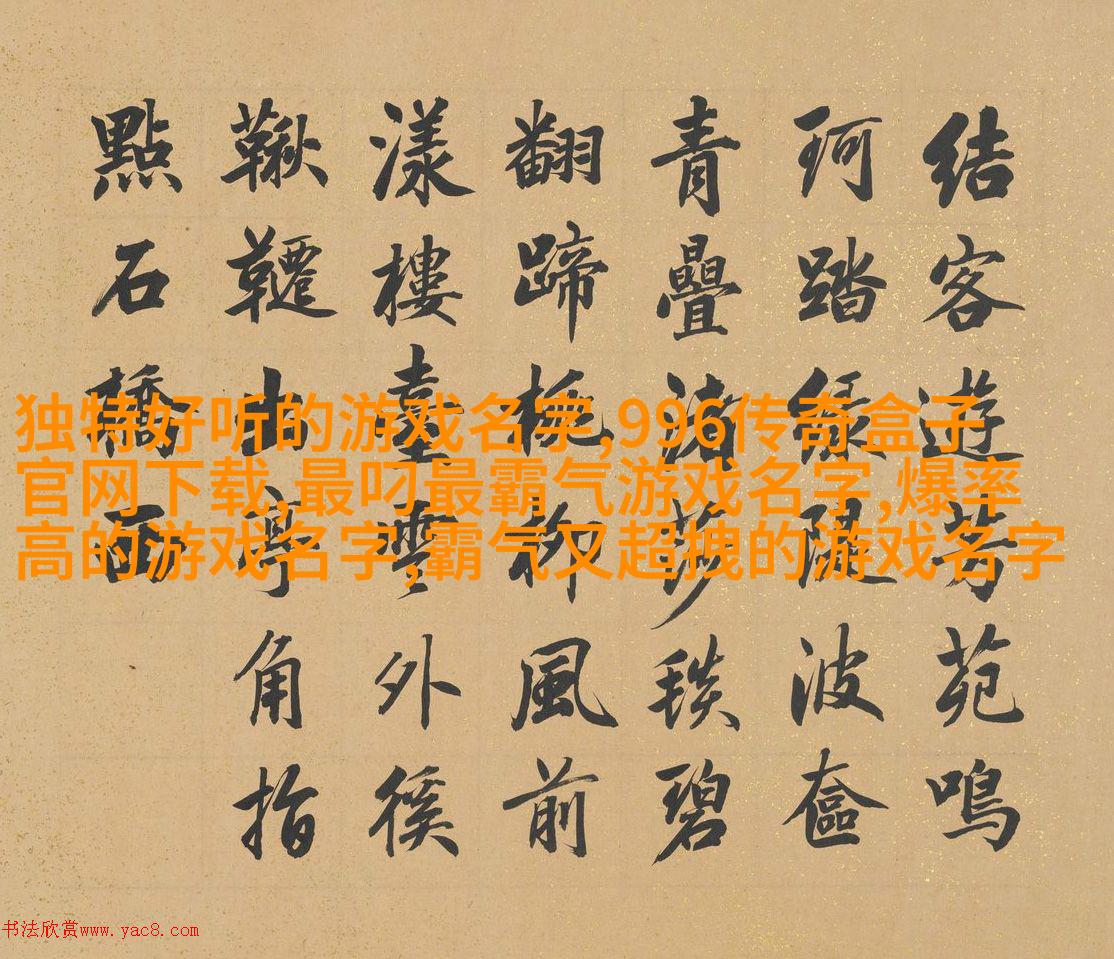 結客遊芳苑鳴
珂踏綠隄波奩
青疊渚莎毯碧
翻蹄柳風前
漾樓臺雲外徯
鞦韆出亭角指
點石橋西
独特好听的游戏名字,996传奇盒子
官网下载,最叼最霸气游戏名字,爆率
高的游戏名字,霸气又超拽的游戏名字
书法欣赏www.yac8.com